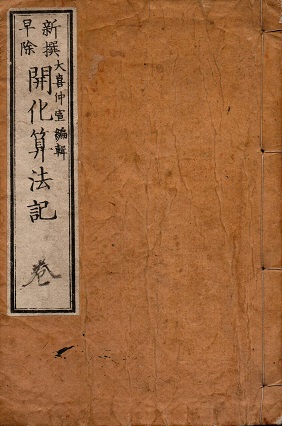 新撰
早除
大喜仲宣編輯
開化算法記
巻